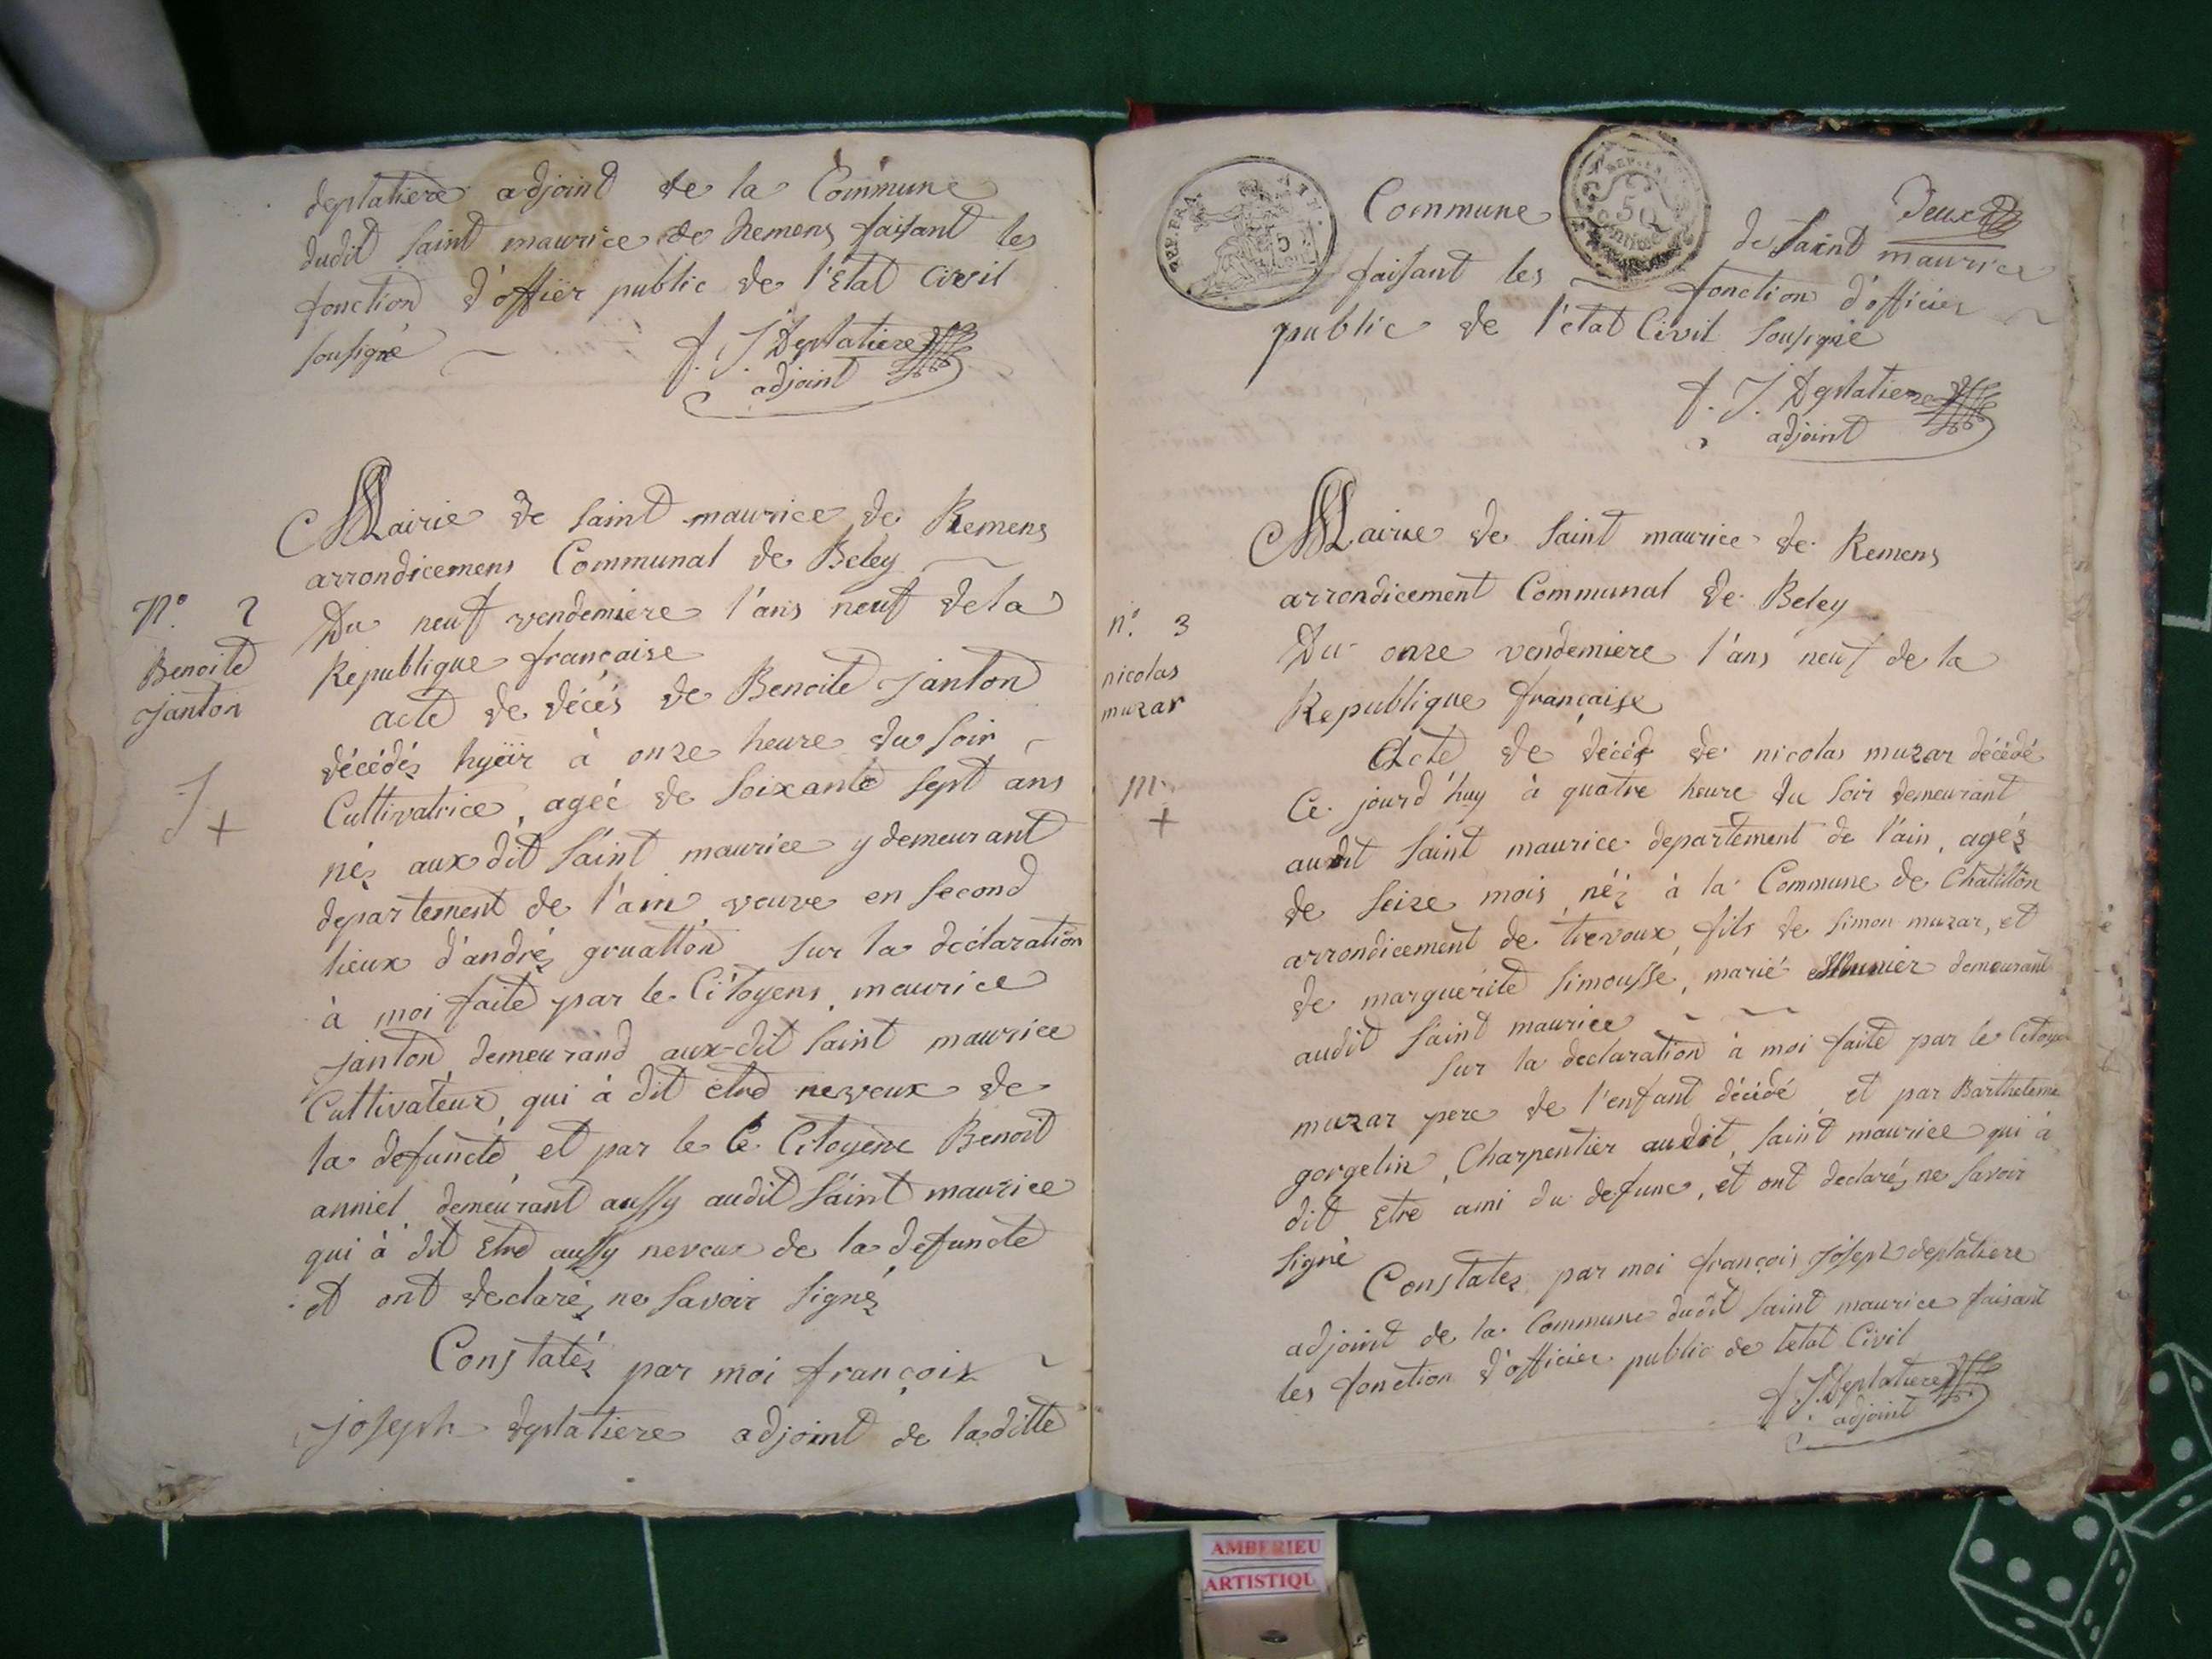 deplatiere adjoint de la Commune
dudit saint maurice de Remens faisant les
fonction d'offiër public de l'Etat Civil
sousigné
f. J Deplatiere
adjoint
Mairie de saint maurice de Remens
arrondicemens Communal de Beley
N.º 2
Benoite
janton
Du neuf vendemiere l'ans neuf de la
Republique française
acte de décés de Benoite janton
décédéz hyëir à onze heure du soir
Cultivatrice, ageé de soixante sept ans
J +
néz aux dit saint maurice y demeurant
departement de l'ain, veuve en second
lieux d'andréz gouatton sur la déclaration
à moi faite par le Citoyens, maurice
janton demeurand aux-dit saint maurice
Cultivateur, qui à dit etre neveux de
la defuncte, et par le C. Citoyène Benoit
anniel demeurant aussy audit saint maurice
qui à dit Etre aussy neveux de la defuncte
et ont declaréz ne savoir signéz
Constatéz par moi françois
joseph deplatiere adjoint de laditte
REP. FRA. 5
50 Centimes
Deux
Commune de saint maurice
faisant les fonction d'officier
public de l'etat Civil sousigné
f. J. Deplatiere
adjoint
Mairie de saint maurice de Remens
arrondicement Communal de Beley
n.º 3
nicolas
muzar
Du onze vendemiere l'ans neuf de la
Republique française
Acte de décéz de nicolas muzar décédé
Ce jourd'huy à quatre heure du soir demeurant
m. +
audit saint maurice departement de l'ain, agéz
de seize mois, néz à la Commune de Chatillôn
arrondicement de trevoux, fils de simon muzar, et
de marguerite simoussé, marié demeurant
audit saint maurice
sur la declaration à moi faite par le Citoyen
muzar pere de l'enfant décédé, et par Bartheleme
gorgelin, Charpentier audit, saint maurice qui à
dit Etre ami du defunc, et ont declaréz ne savoir
signé
Constatez par moi françois joseph deplatiere
adjoint de la Commune dudit saint maurice faisant
les fonction d'officier public de letat Civil
f. J. Deplatiere
adjoint
AMBERIEU
ARTISTIQU